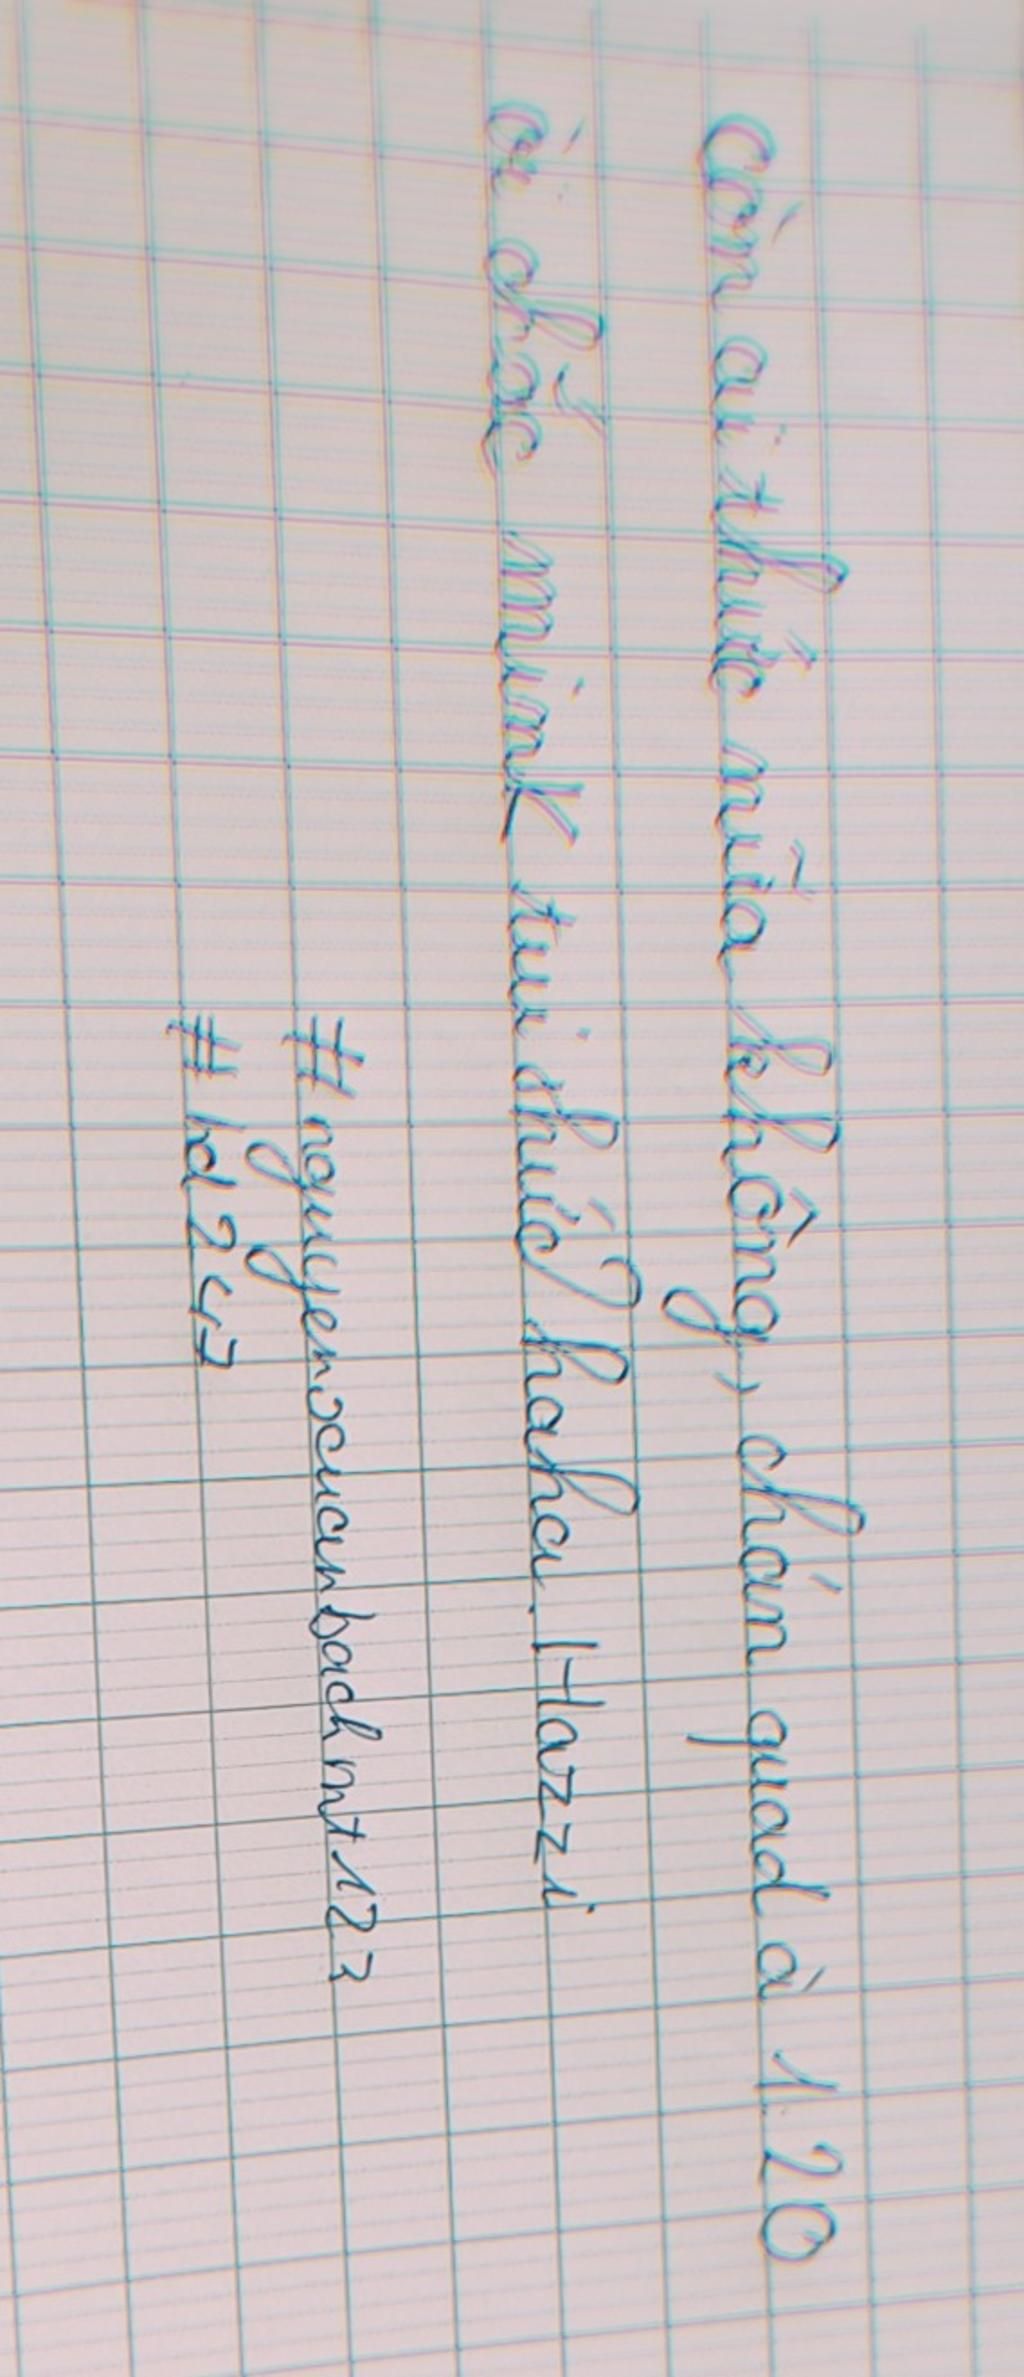 Còn ai thức nữa không, chán quad à 1.20
òi chắc mink tui thức? haha. Hazzi
#nguyenxuanbachmt123
#bd247